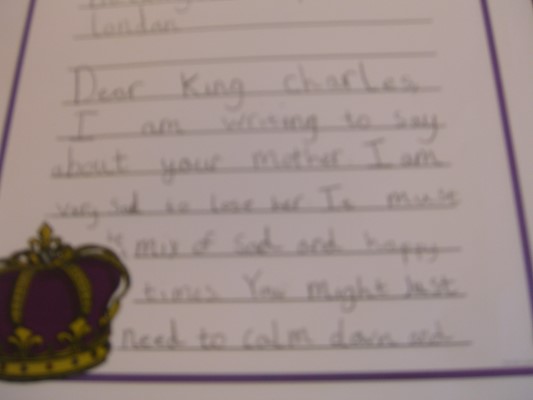 London
Dear King Charles,
I am writing to say
about your mother I am
very sad to lose her It must
mix of sad and happy
times You might just
need to calm down and